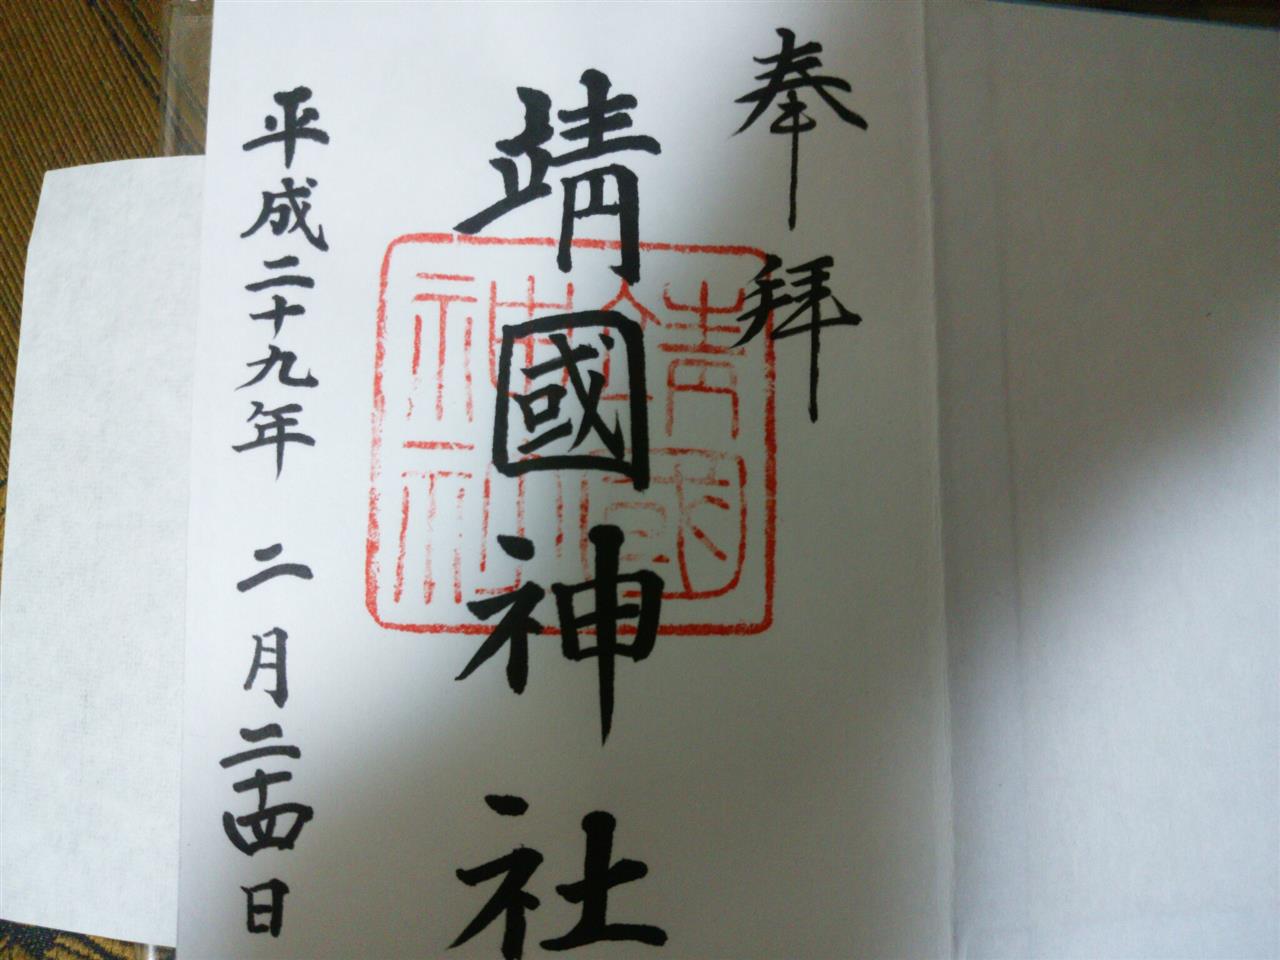 奉拝
靖國神社
靖國
神社
平成二十九年 二月二十四日